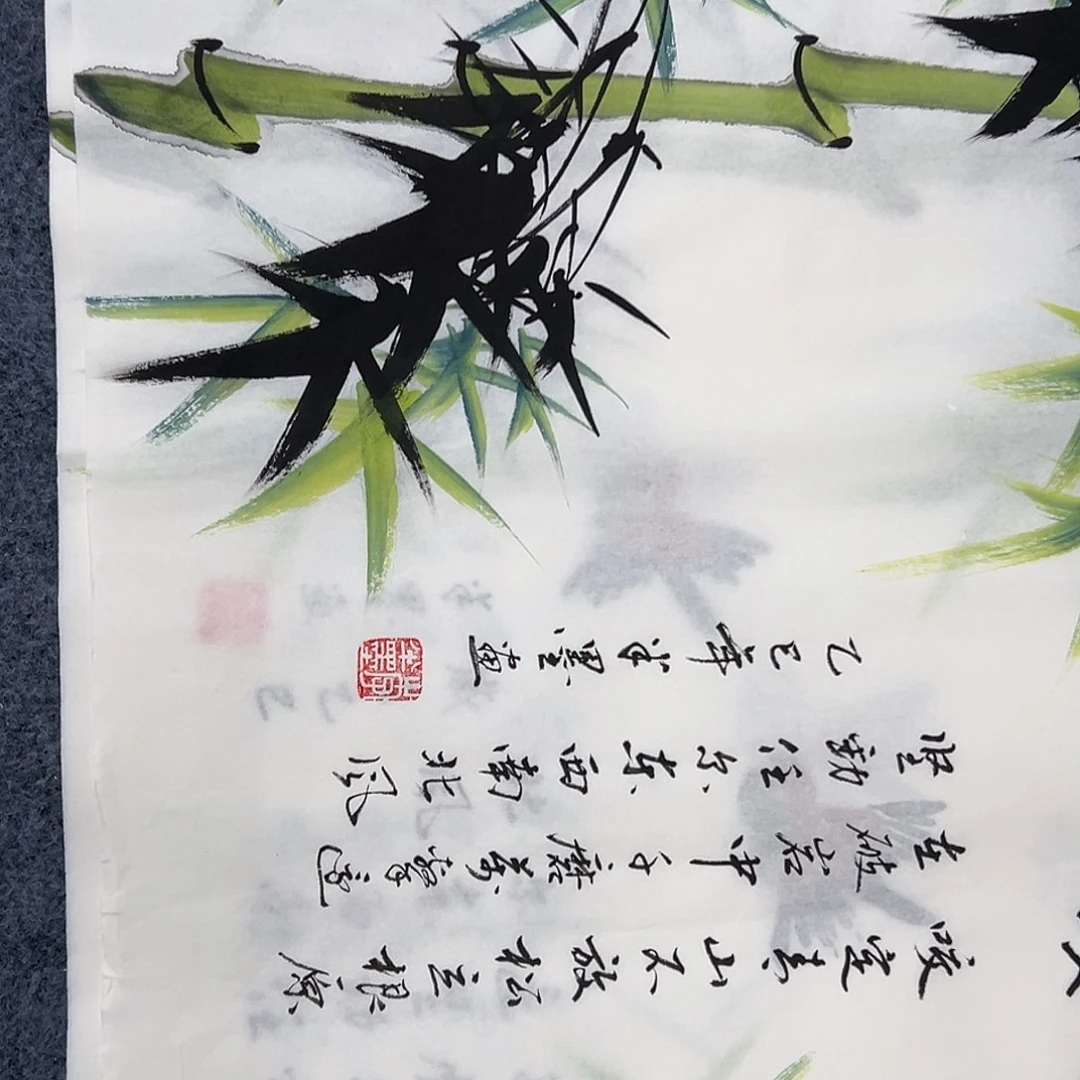 咬定青山不放松立根原
在破岩中千磨萬擊还
堅勁任尔东西南北风
乙巳年墨画